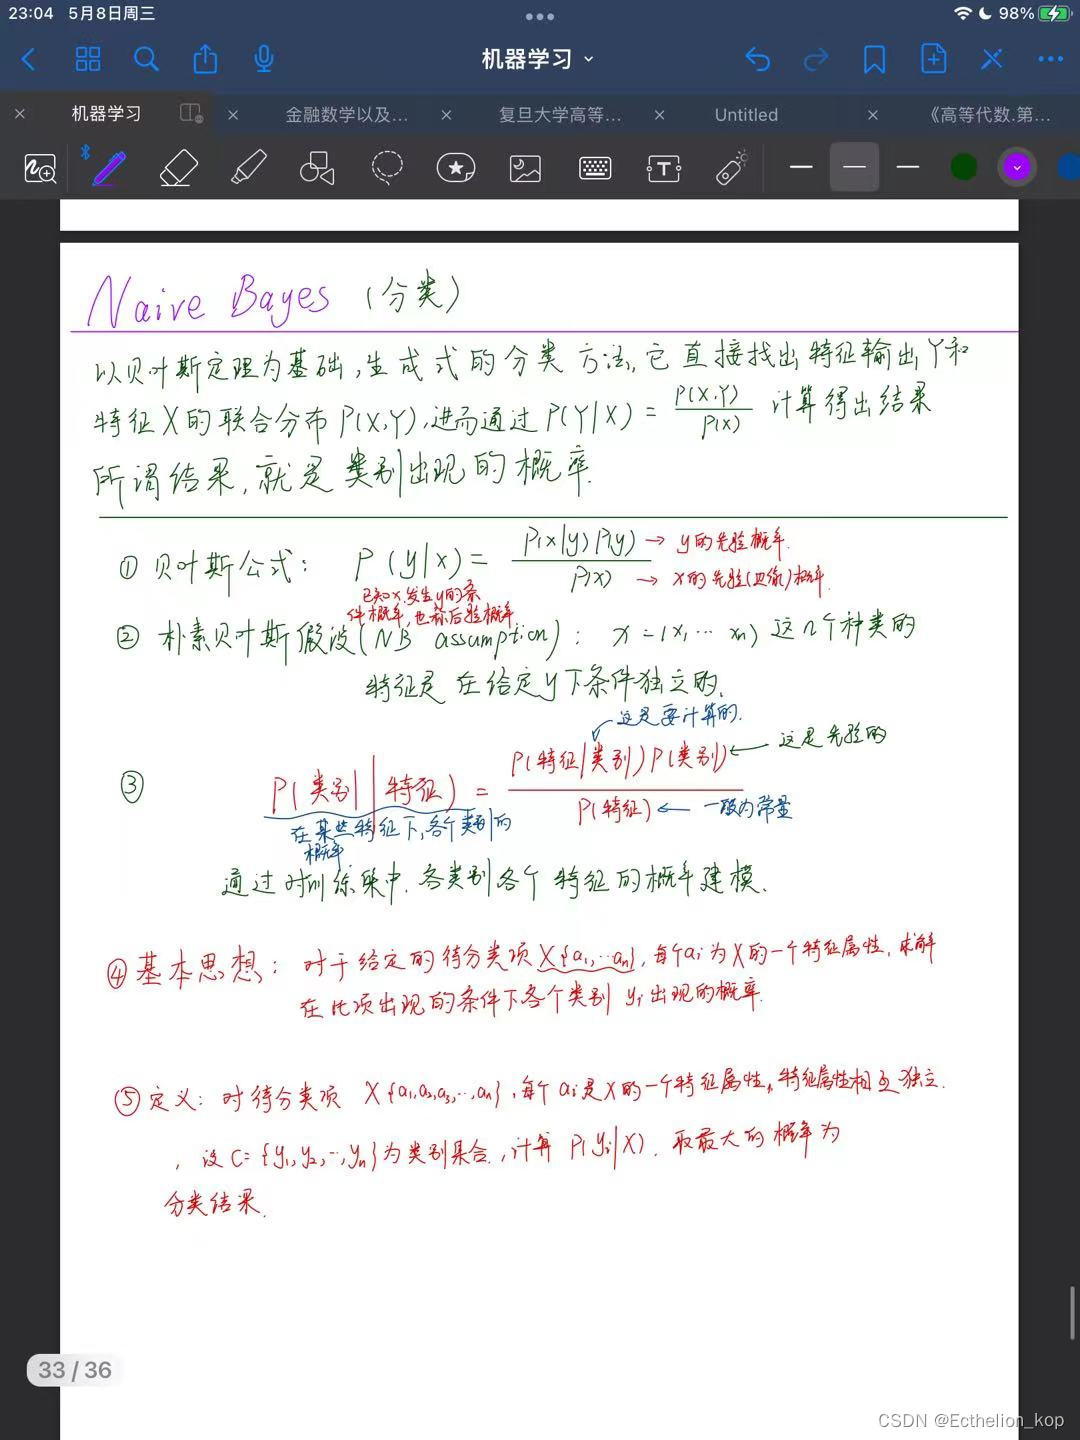 23:04 5月8日周三
98%
机器学习
机器学习
金融数学以及...
复旦大学高等...
Untitled
《高等代数.第...
Naive Bayes (分类)
以贝叶斯定理为基础,生成式的分类方法,它直接找出特征输出Y和
特征X的联合分布P(X,Y),进而通过P(Y|X) = P(X,Y)/P(X) 计算得出结果
所谓结果,就是类别出现的概率.
① 贝叶斯公式: P(y|x) = P(x|y)P(y)/P(x)
→ y的先验概率.
→ x的先验(边缘)概率.
已知x,发生y的条
件概率,也称后验概率.
② 朴素贝叶斯假设(NB assumption): x=(x₁…xₙ) 这n个种类的
特征是在给定y下条件独立的.
这是要计算的.
这是先验的
③ P(类别|特征) = P(特征|类别)P(类别)/P(特征)
← 一般为常量
在某些特征下,各个类别的
概率.
通过对训练集中,各类别各个特征的概率建模.
④ 基本思想: 对于给定的待分类项X{a₁,…aₙ},每个aᵢ为X的一个特征属性,求解
在此项出现的条件下各个类别yᵢ出现的概率.
⑤ 定义: 对待分类项 X{a₁,a₂,a₃,…,aₙ},每个aᵢ是X的一个特征属性,特征属性相互独立.
,设C={y₁,y₂,…,yₙ}为类别集合,计算P(yᵢ|X),取最大的概率为
分类结果.
33 / 36
CSDN @Ecthelion_kop